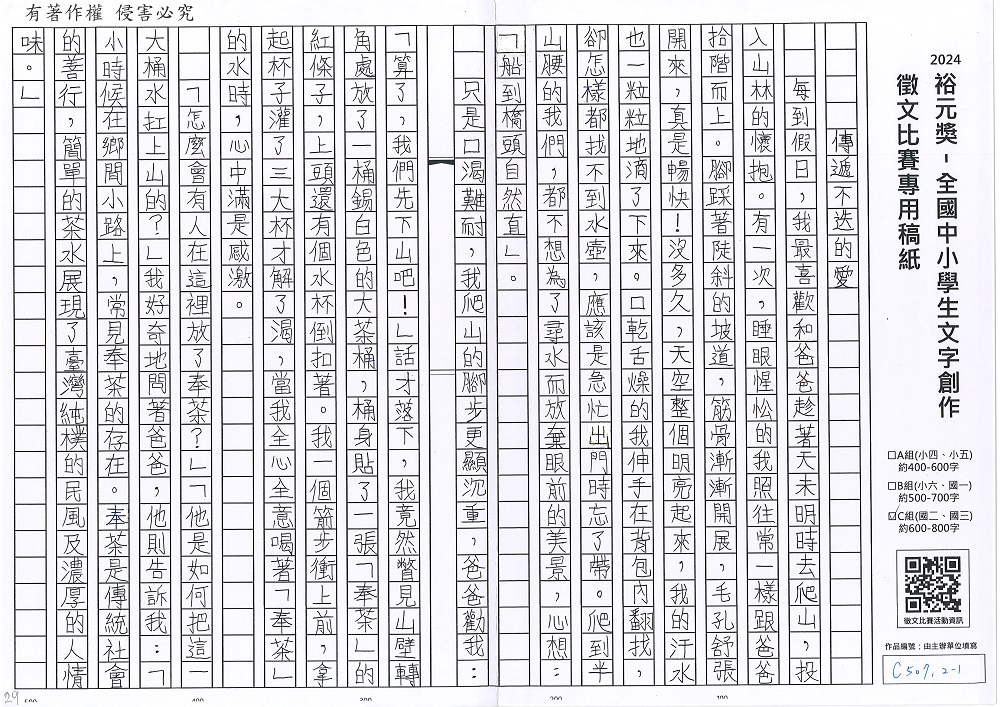 有著作權 侵害必究
2024
裕元獎-全國中小學生文字創作
徵文比賽專用稿紙
□A組(小四、小五)
約400-600字
□B組(小六、國一)
約500-700字
☑C組(國二、國三)
約600-800字
徵文比賽活動資訊
作品編號：由主辦單位填寫
C507.2-1
傳遞不迭的愛
每到假日，我最喜歡和爸爸趁著天未明時去爬山，投
入山林的懷抱。有一次，睡眼惺忪的我照往常一樣跟爸爸
拾階而上。腳踩著陡斜的坡道，筋骨漸漸開展，毛孔舒張
開來，真是暢快！沒多久，天空整個明亮起來，我的汗水
也一粒粒地滴了下來。口乾舌燥的我伸手在背包內翻找，
卻怎樣都找不到水壺，應該是急忙出門時忘了帶。爬到半
山腰的我們，都不想為了尋水而放棄眼前的美景，心想：
「船到橋頭自然直」。
只是口渴難耐，我爬山的腳步更顯沉重，爸爸勸我：
「算了，我們先下山吧！」話才落下，我竟然瞥見山壁轉
角處放了一桶錫白色的大茶桶，桶身貼了一張「奉茶」的
紅條子，上頭還有個水杯倒扣著。我一個箭步衝上前，拿
起杯子灌了三大杯才解了渴，當我全心全意喝著「奉茶」
的水時，心中滿是感激。
「怎麼會有人在這裡放了奉茶？」「他是如何把這一
大桶水扛上山的？」我好奇地問著爸爸，他則告訴我：「
小時候在鄉間小路上，常見奉茶的存在。奉茶是傳統社會
的善行，簡單的茶水展現了臺灣純樸的民風及濃厚的人情
味。」
100
200
300
400
500
29